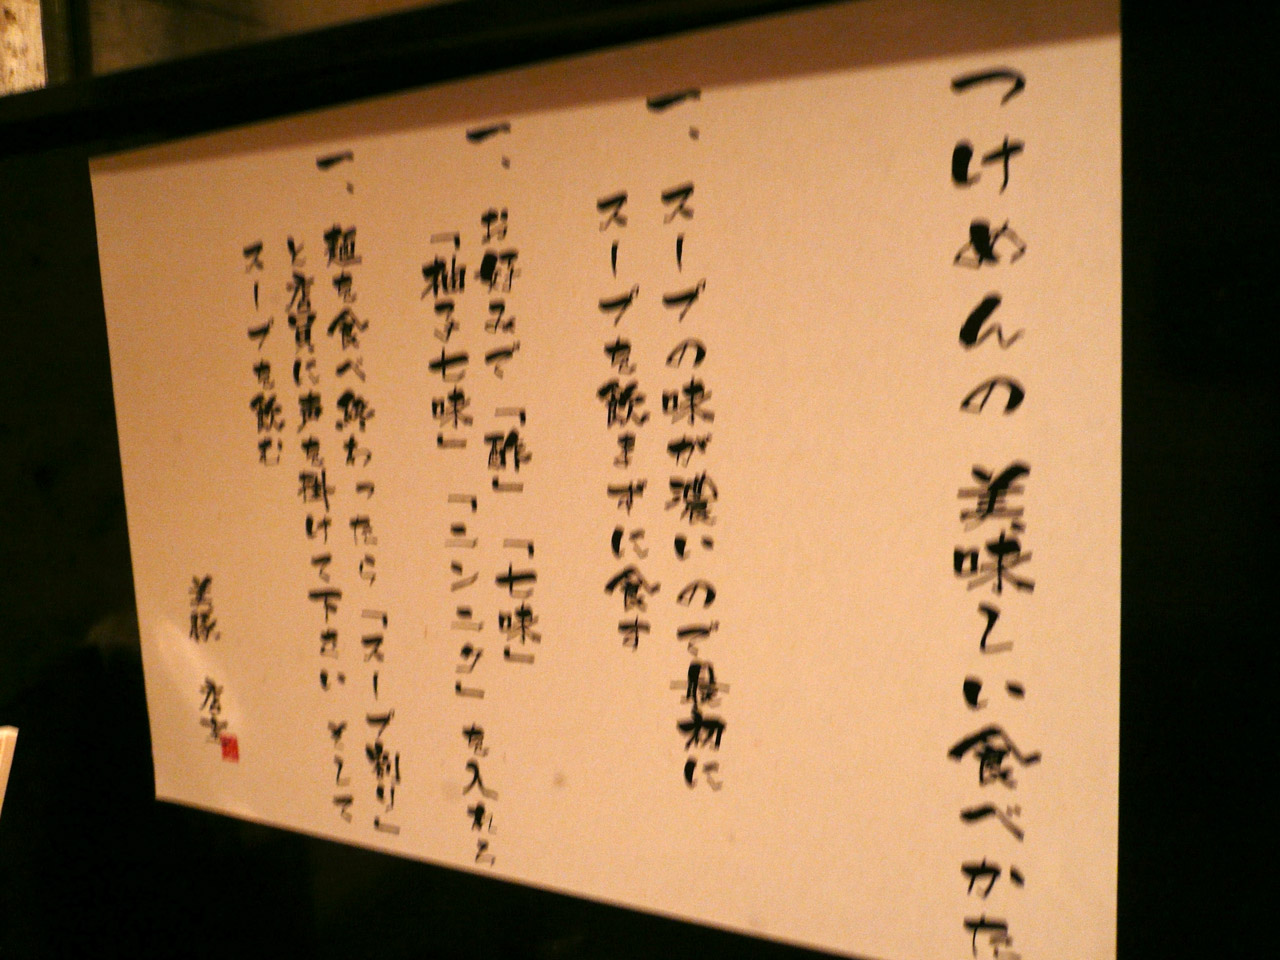 つけめんの美味しい食べかた
一、スープの味が濃いので最初に
スープを飲まずに食す
一、お好みで「酢」「七味」
「柚子七味」「ニンニク」を入れる
一、麺を食べ終わったら「スープ割り」
と店員に声を掛けて下さい そして
スープを飲む
店主